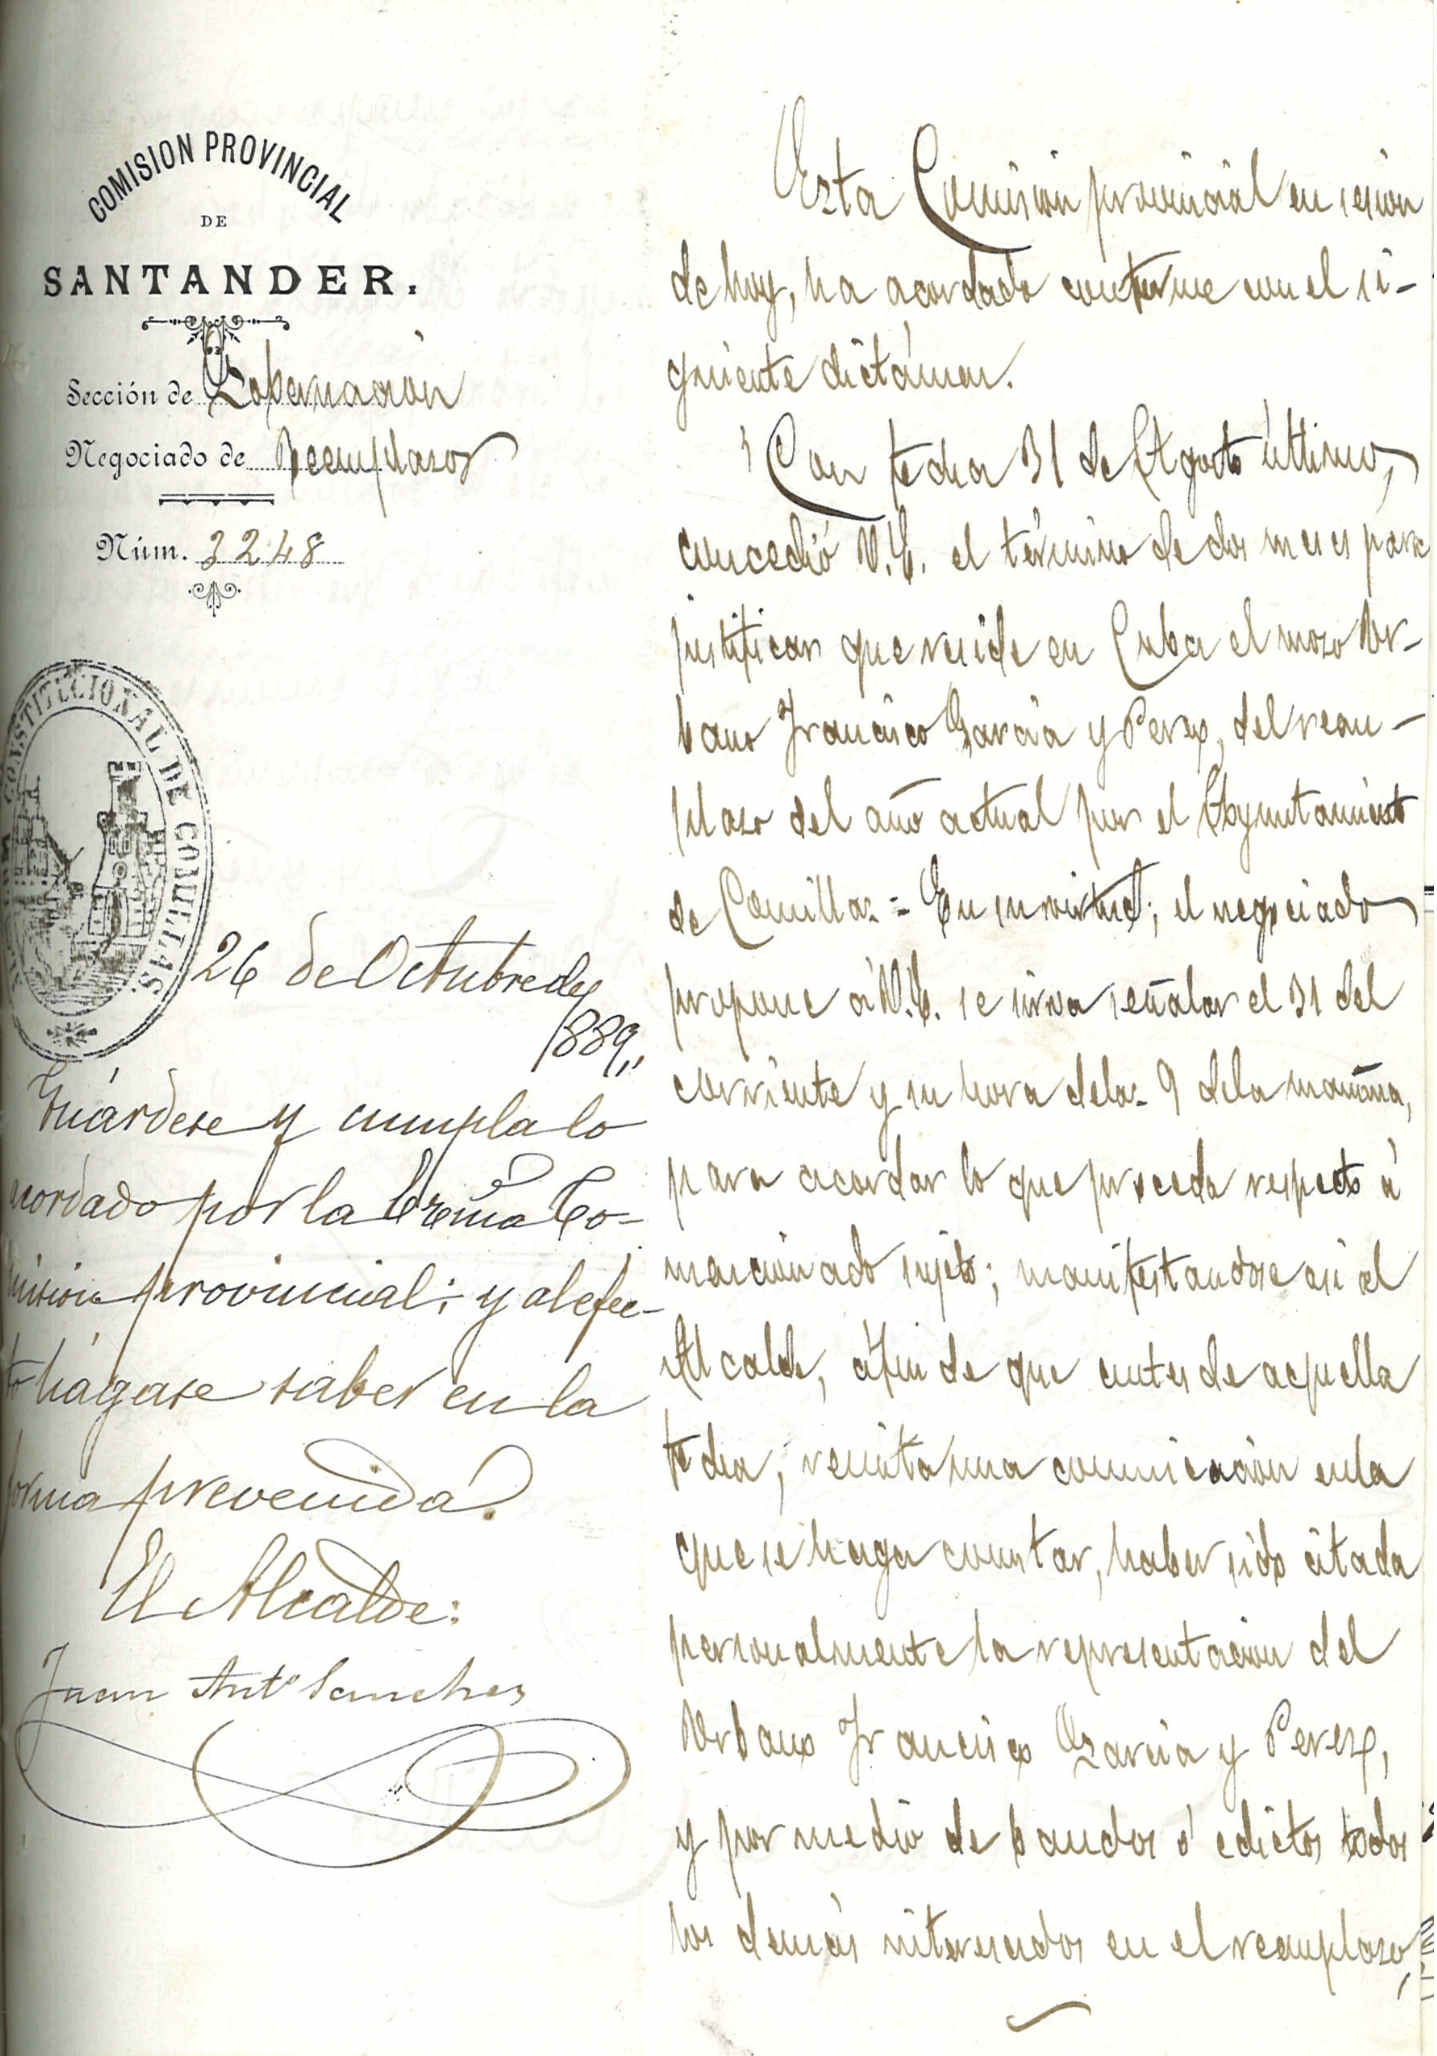 COMISION PROVINCIAL
DE
SANTANDER.
Sección de Gobernación
Negociado de Reemplazos
Núm. 2248
CONSTITUCIONAL DE COMILLAS
26 de Octubre de
1889,,
Guárdese y cumplalo
acordado por la Exma Co-
mision provincial; y al efec-
to hágase saber en la
forma prevenida.
El Alcalde:
Juan Antº Sanchez
Esta Comisión provincial en sesion
de hoy, ha acordado conforme con el si-
guiente dictámen.
Con fecha 31 de Agosto último,
concedió V.E. el término de dos meses para
justificar que reside en Cuba el mozo Ur-
bano Francisco Garcia y Perez, del reem-
plazo del año actual por el Ayuntamiento
de Comillas = En su virtud; el negociado
propone á V.E. se sirva señalar el 31 del
corriente y su hora delas 9 dela mañana,
para acordar lo que proceda respecto á
mencionado sujeto; manifestandose asi al
Alcalde, áfin de que antes de aquella
fecha, remita una comunicación enla
que se haga constar, haber sido citada
personalmente la representacion del
Urbano Francisco Garcia y Perez,
y por medio de bandos ó edictos todos
los demás interesados en el reemplazo,